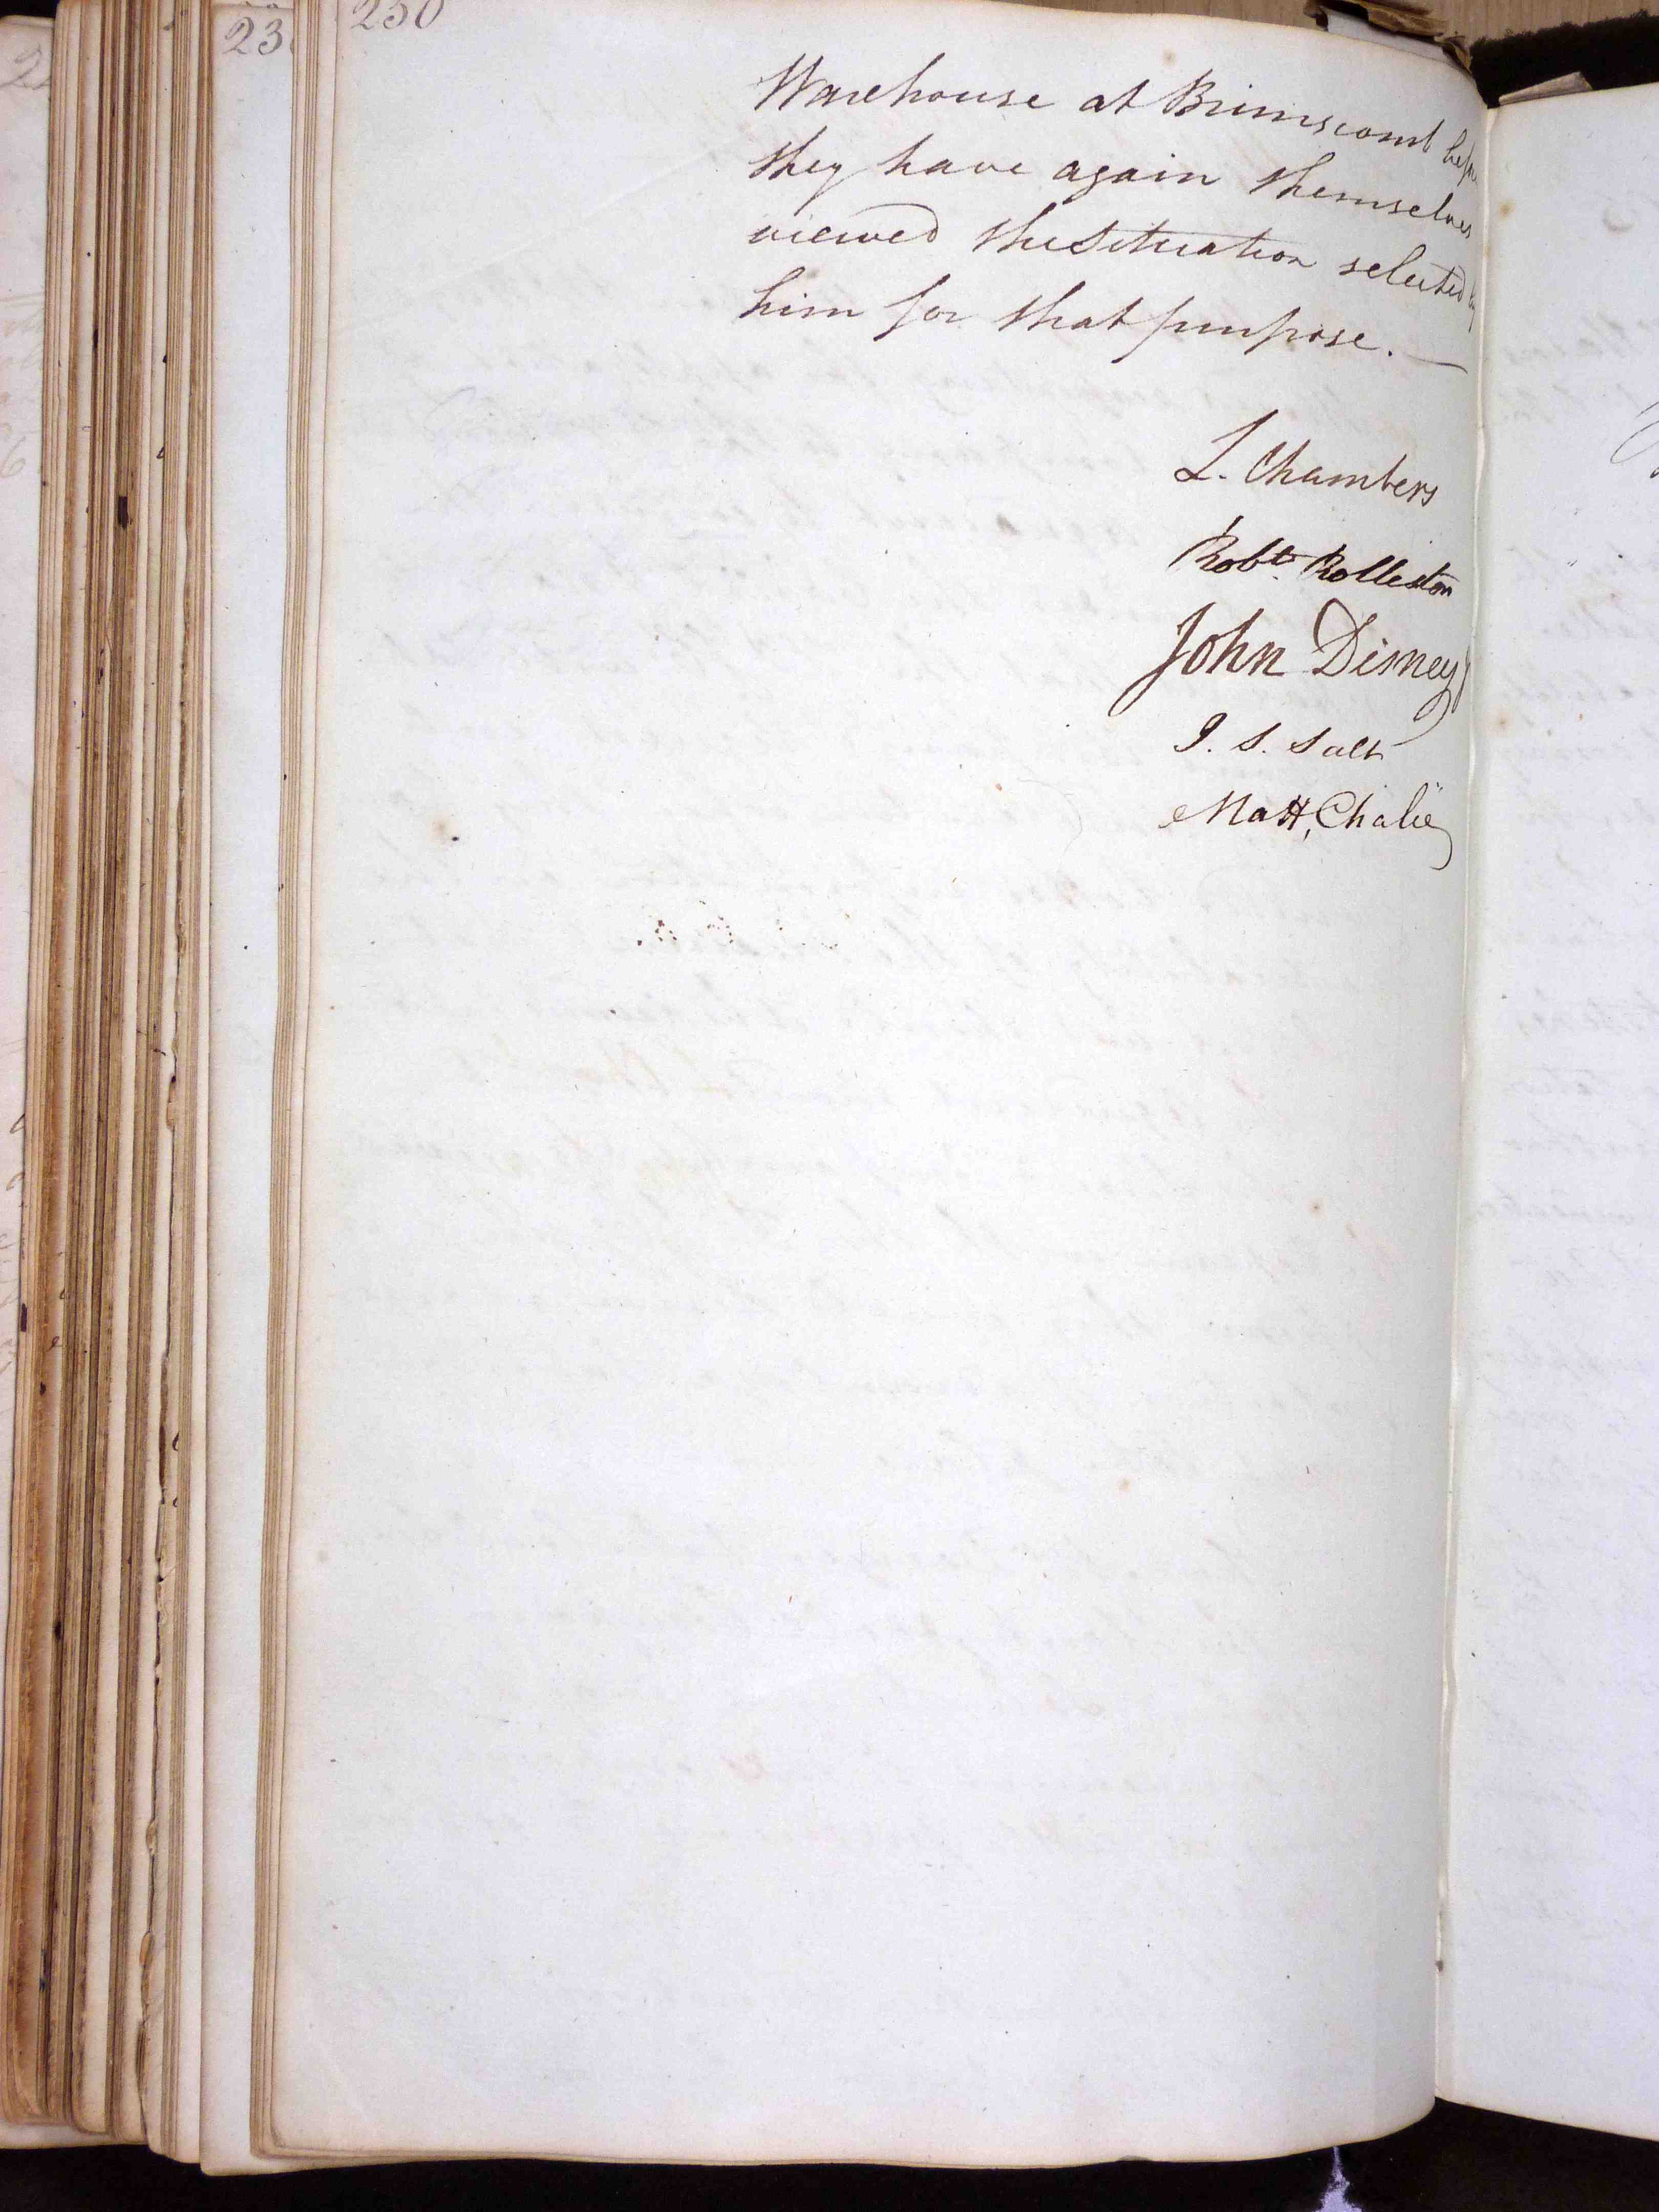 230
Warehouse at Brimscomb before
they have again themselves
viewed the Situation selected by
him for that purpose. —
L. Chambers
Robt. Rolleston
John Disney
J. S. Salt
Matt, Chalié